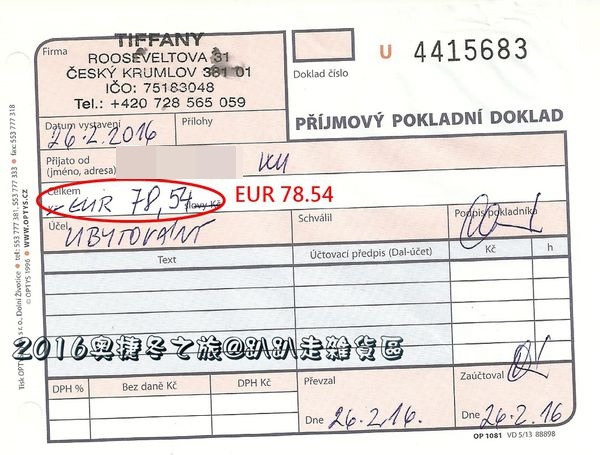 TIFFANY
ROOSEVELTOVA 31
ČESKÝ KRUMLOV 381 01
IČO: 75183048
Tel.: +420 728 565 059
Firma
Doklad číslo
U 4415683
PŘÍJMOVÝ POKLADNÍ DOKLAD
Datum vystavení
26.2.2016
Přílohy
Přijato od
(jméno, adresa)
Celkem
Kč EUR 78,54
slovy Kč
EUR 78.54
Účel
UBYTOVÁNÍ
Schválil
Podpis pokladníka
Text
Účtovací předpis (Dal-účet)
Kč
h
2016奧捷冬之旅@趴趴走雜貨區
DPH %
Bez daně Kč
DPH Kč
Převzal
Dne 26.2.16.
Zaúčtoval
Dne 26.2.16
OP 1081 VD 5/13 88898
Tisk OPTYS s.r.o., Dolní Životice ● tel.: 553 777 381, 553 777 333 ● fax: 553 777 318
© OPTYS 1996 ● WWW.OPTYS.CZ